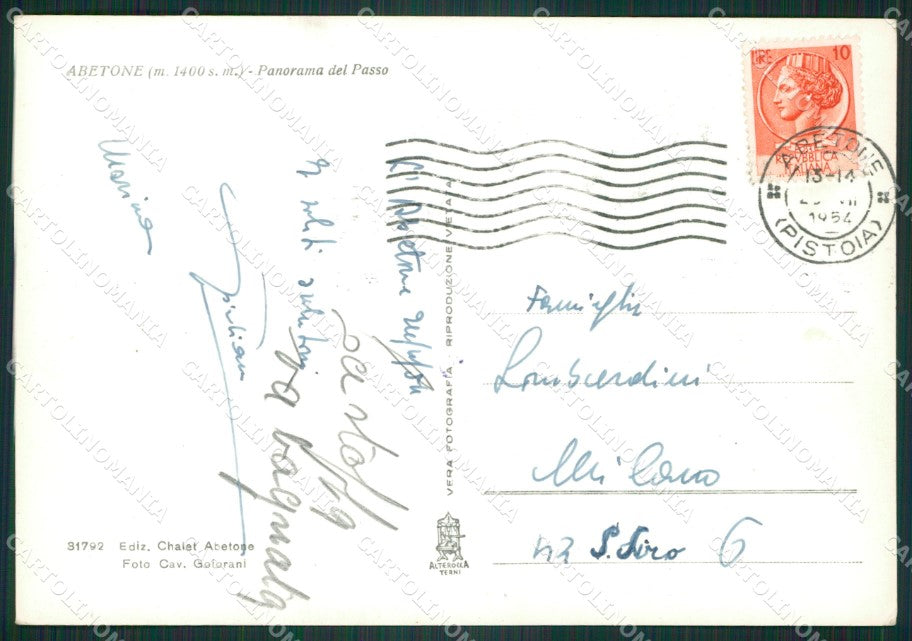 ABETONE (m. 1400 s. m.) - Panorama del Passo
LIRE 10
REPUBBLICA
ITALIANA
ABETONE
13-14
1954
(PISTOIA)
Abetone
I soliti saluti
Giuliana
Marina
La stoffa
va bagnata
VERA FOTOGRAFIA. RIPRODUZIONE VIETATA
Famiglia
Lombardini
Milano
S. Siro 6
31792 Ediz. Chalet Abetone
Foto Cav. Goforani
ALTEROCCA
TERNI
CARTOLINOMANIA